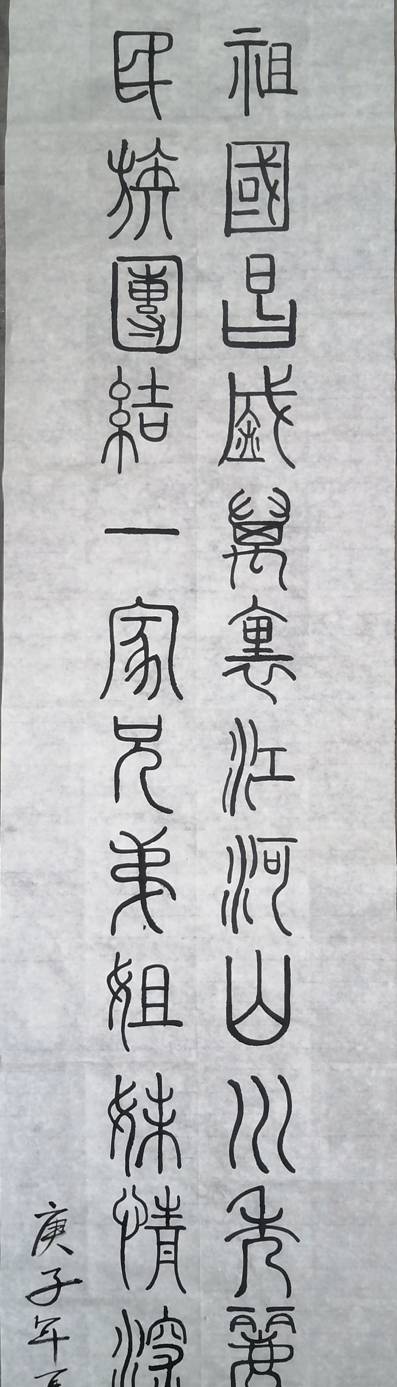 祖國昌盛萬裏江河山川秀麗
民族團結一家兄弟姐妹情深
庚子年